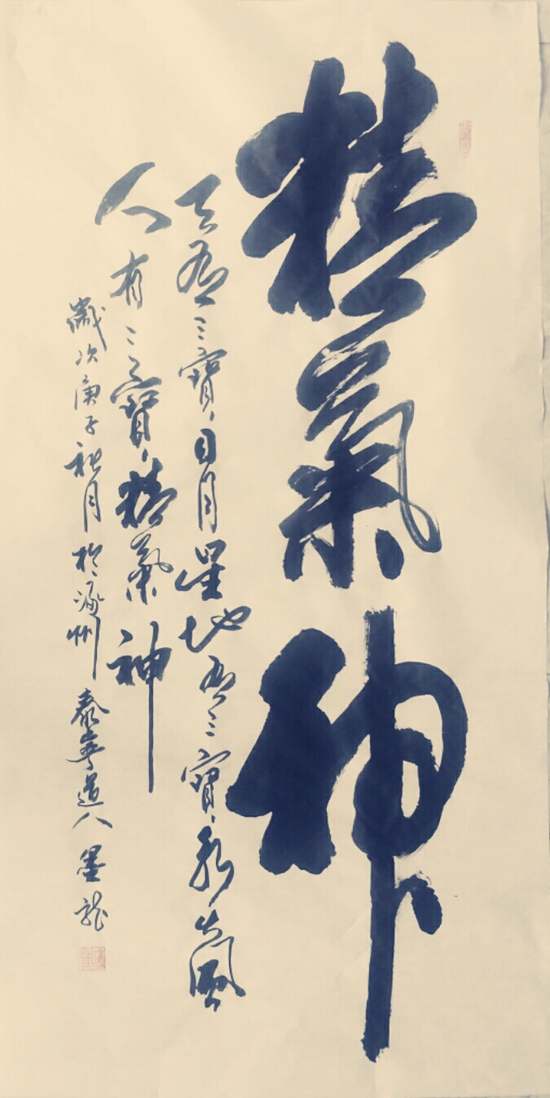 精氣神
天有三寶日月星地有三寶水火風
人有三寶精氣神
歲次庚子秋月於涿州泰寧道人墨龍